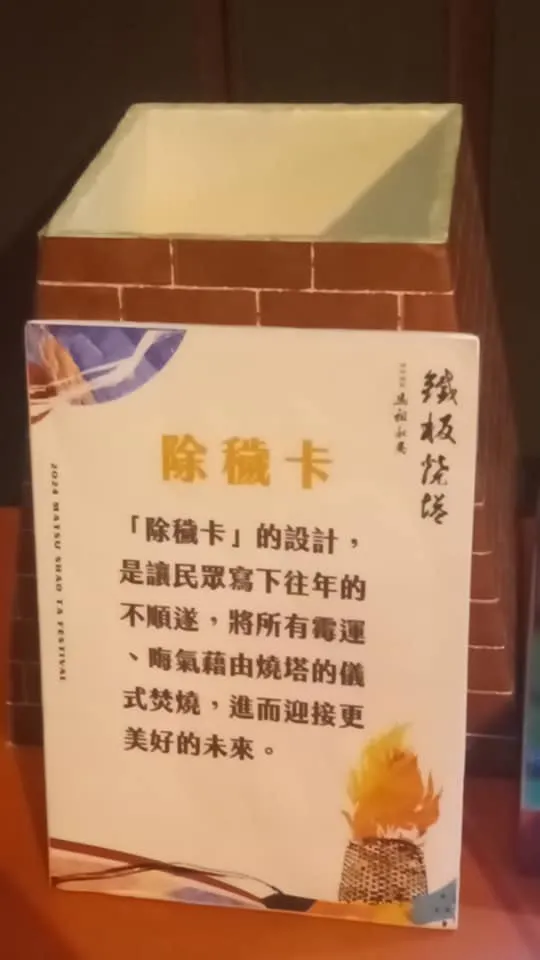 鐵板燒塔
馬祖北竿
除穢卡
「除穢卡」的設計，
是讓民眾寫下往年的
不順遂，將所有霉運
、晦氣藉由燒塔的儀
式焚燒，進而迎接更
美好的未來。
2024 MATSU SHAO TA FESTIVAL